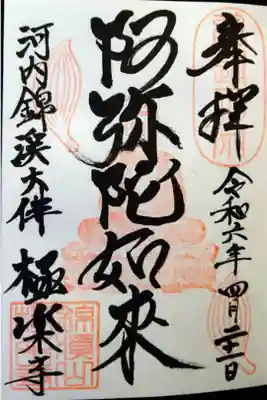 奉拝
令和六年四月二十一日
阿弥陀如來
河内錦溪大佛 極楽寺